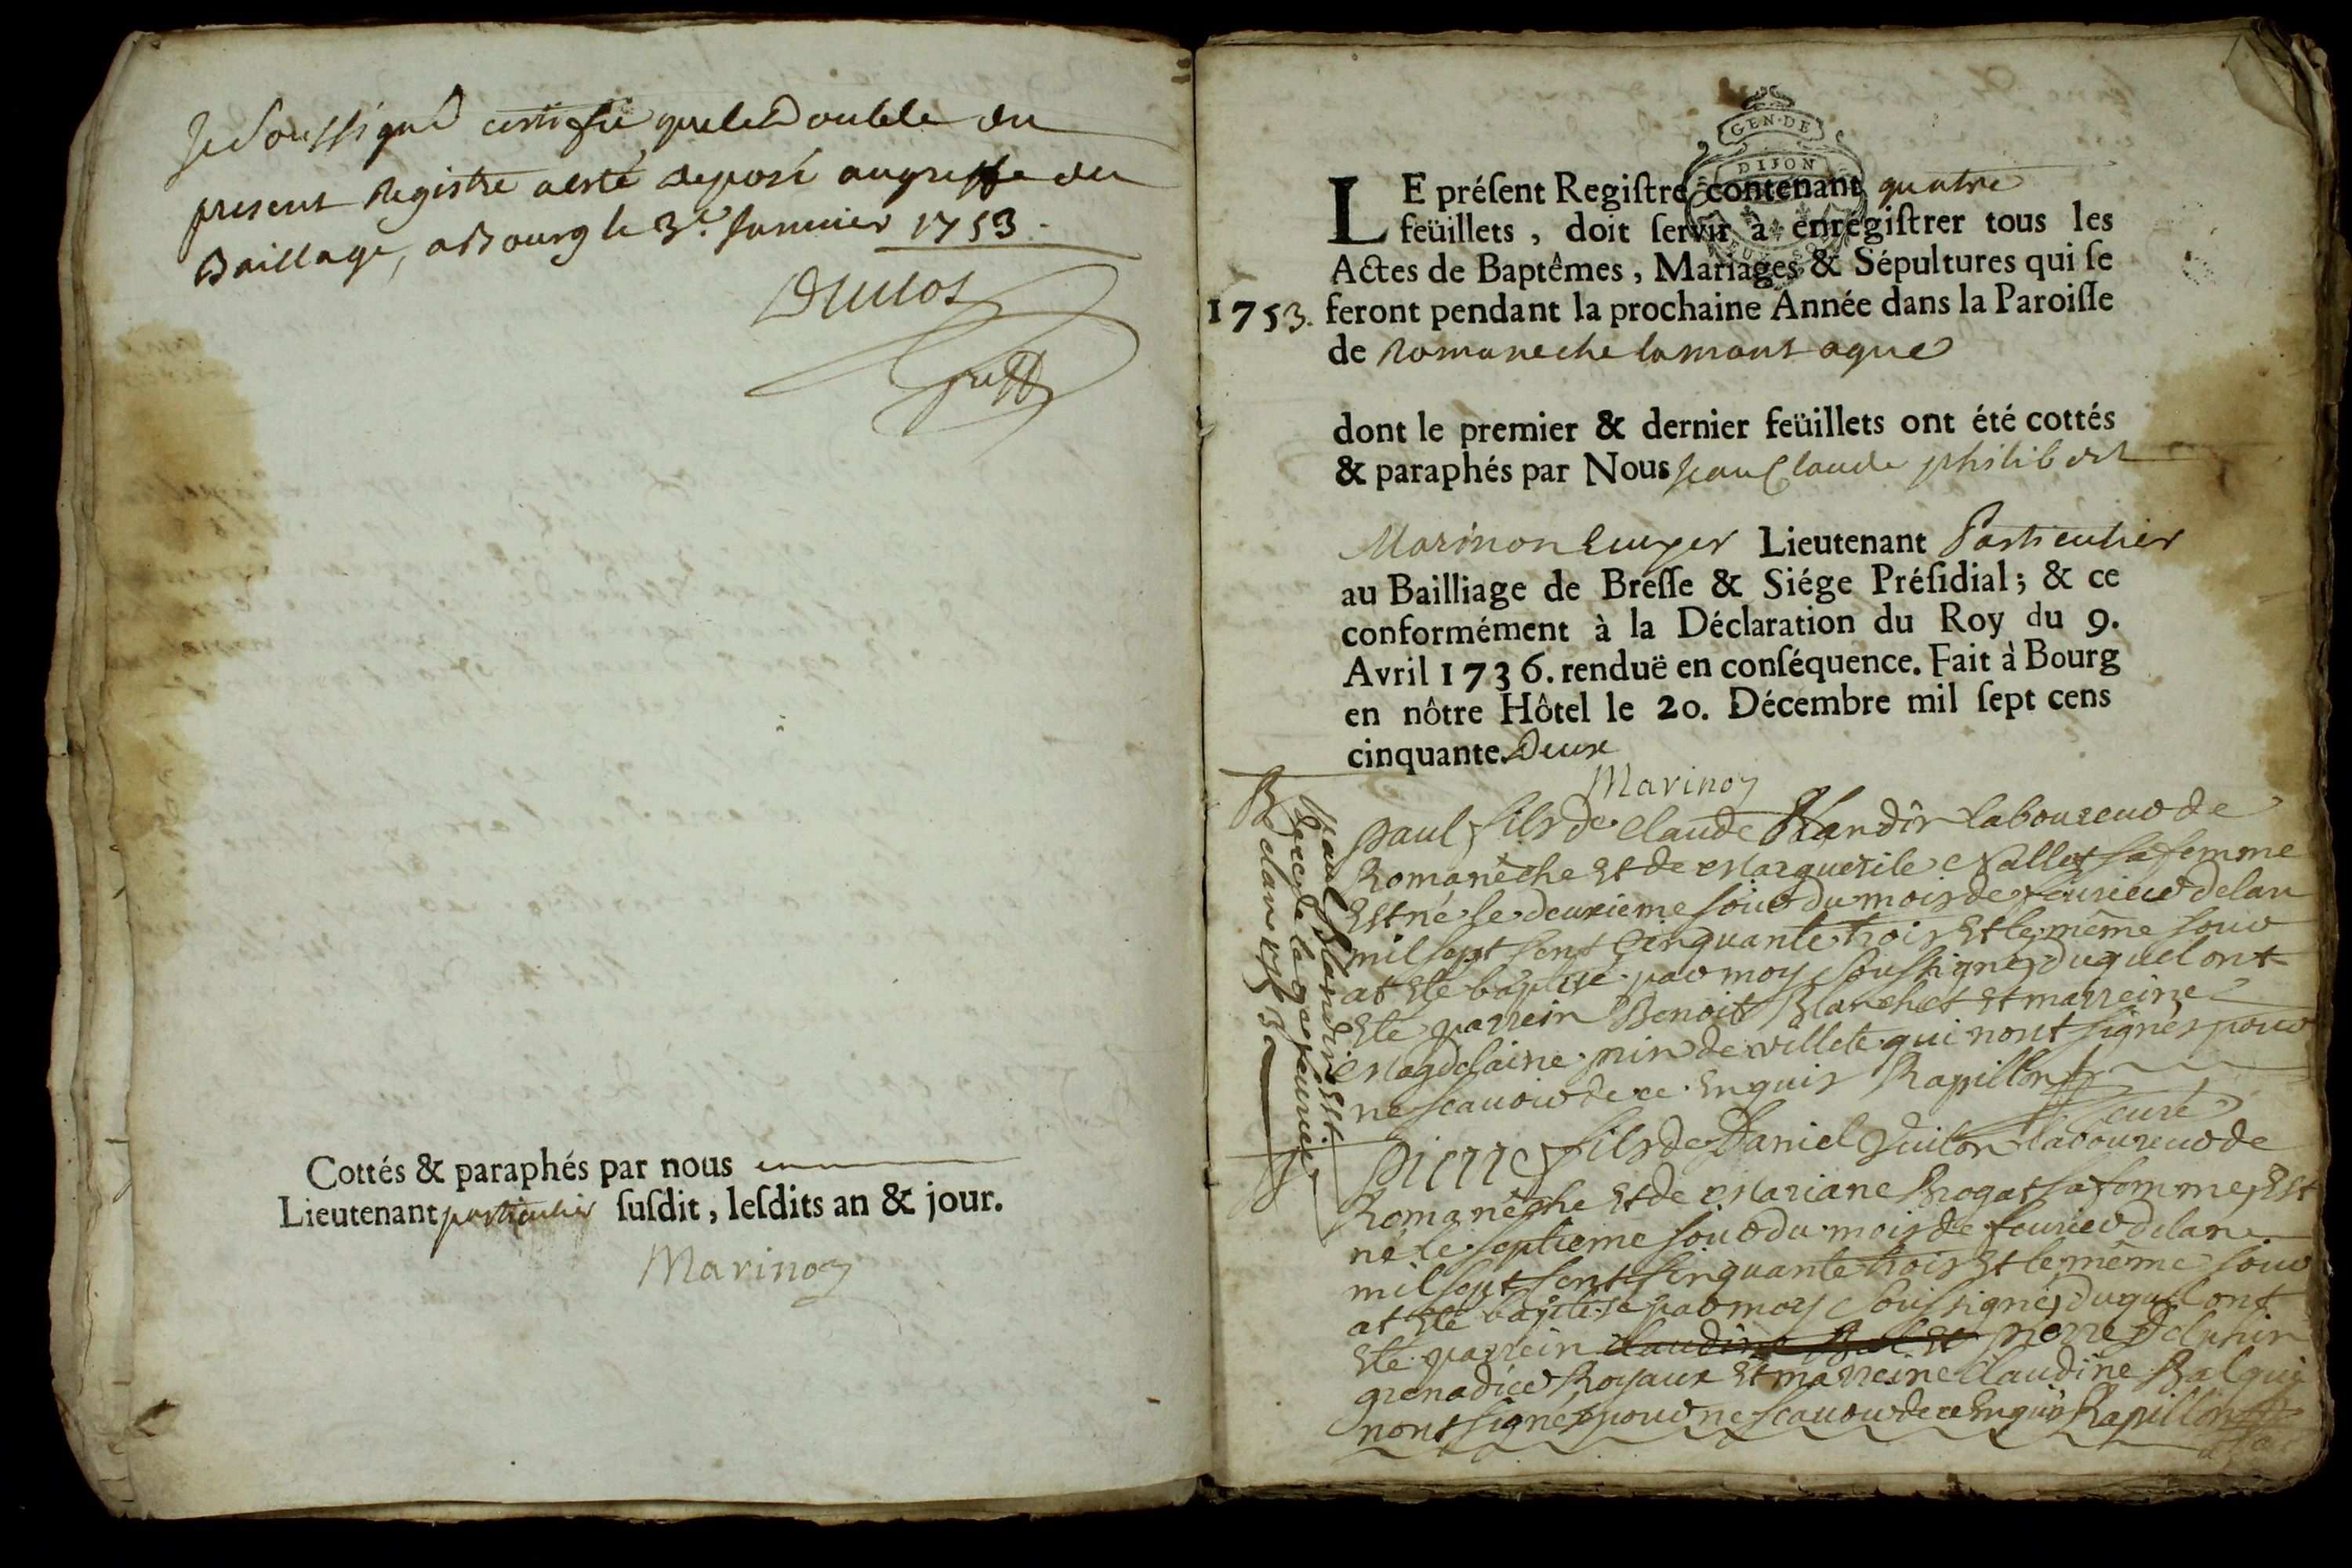 Je soussigné certifie que le Double du
present Registre a esté deposé au greffe du
Baillage, a Bourg le 3.e Janvier 1753.
Cottés & paraphés par nous
Lieutenant particulier ſuſdit, leſdits an & jour.
Marinon
GEN·DE
DIJON
LE préſent Regiſtre contenant quatre
feüillets, doit ſervir à enregiſtrer tous les
Actes de Baptêmes, Mariages & Sépultures qui ſe
1753. feront pendant la prochaine Année dans la Paroiſſe
de Romaneche la montagne
dont le premier & dernier feüillets ont été cottés
& paraphés par Nous Jean Claude philibert
Marinon Lieutenant Particulier
au Bailliage de Breſſe & Siége Préſidial; & ce
conformément à la Déclaration du Roy du 9.
Avril 1736. renduë en conſéquence. Fait à Bourg
en nôtre Hôtel le 20. Décembre mil ſept cens
cinquante. Deux
Marinon
paul fils de Claude Blandin laboureur de
Romanêche Et de Marguerite sa femme
Est né le deuxieme jour du mois de feurier de lan
mil sept sent Cinquante trois Et le même jour
at Eté baptisé par moy soussigné, duquel ont
Eté parrein Benoit Blanchet Et marreine
Magdelaine pin de villete qui nont signés pour
ne scauoir de ce Enquis Rapillon
curé
paul Blandin Est
decede le feurier
de lan 1753
pierre fils de Daniel Guiton laboureur de
Romanêche Et de Mariane Brogat sa femme, Est
né le septieme jour du mois de feurier de lan
mil sept sent sinquante trois Et le même jour
at Eté baptisé par moy soussigné, duquel ont
Eté parrein claudine Bal Et pierre Delphin
grenadier Royaux Et marreine Claudine Bal qui
nont signés pour ne scauoir de ce Enquis Rapillon